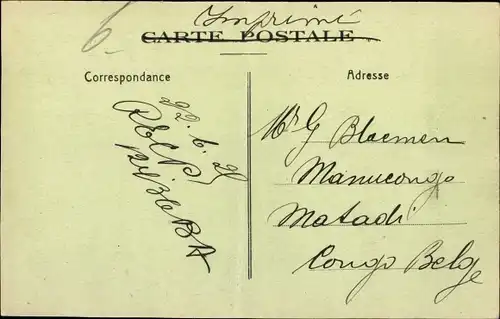 Imprimé
6
CARTE POSTALE
Correspondance
Adresse
22.6.28
Mr G Blaemen
Manucongo
Matadi
Congo Belge